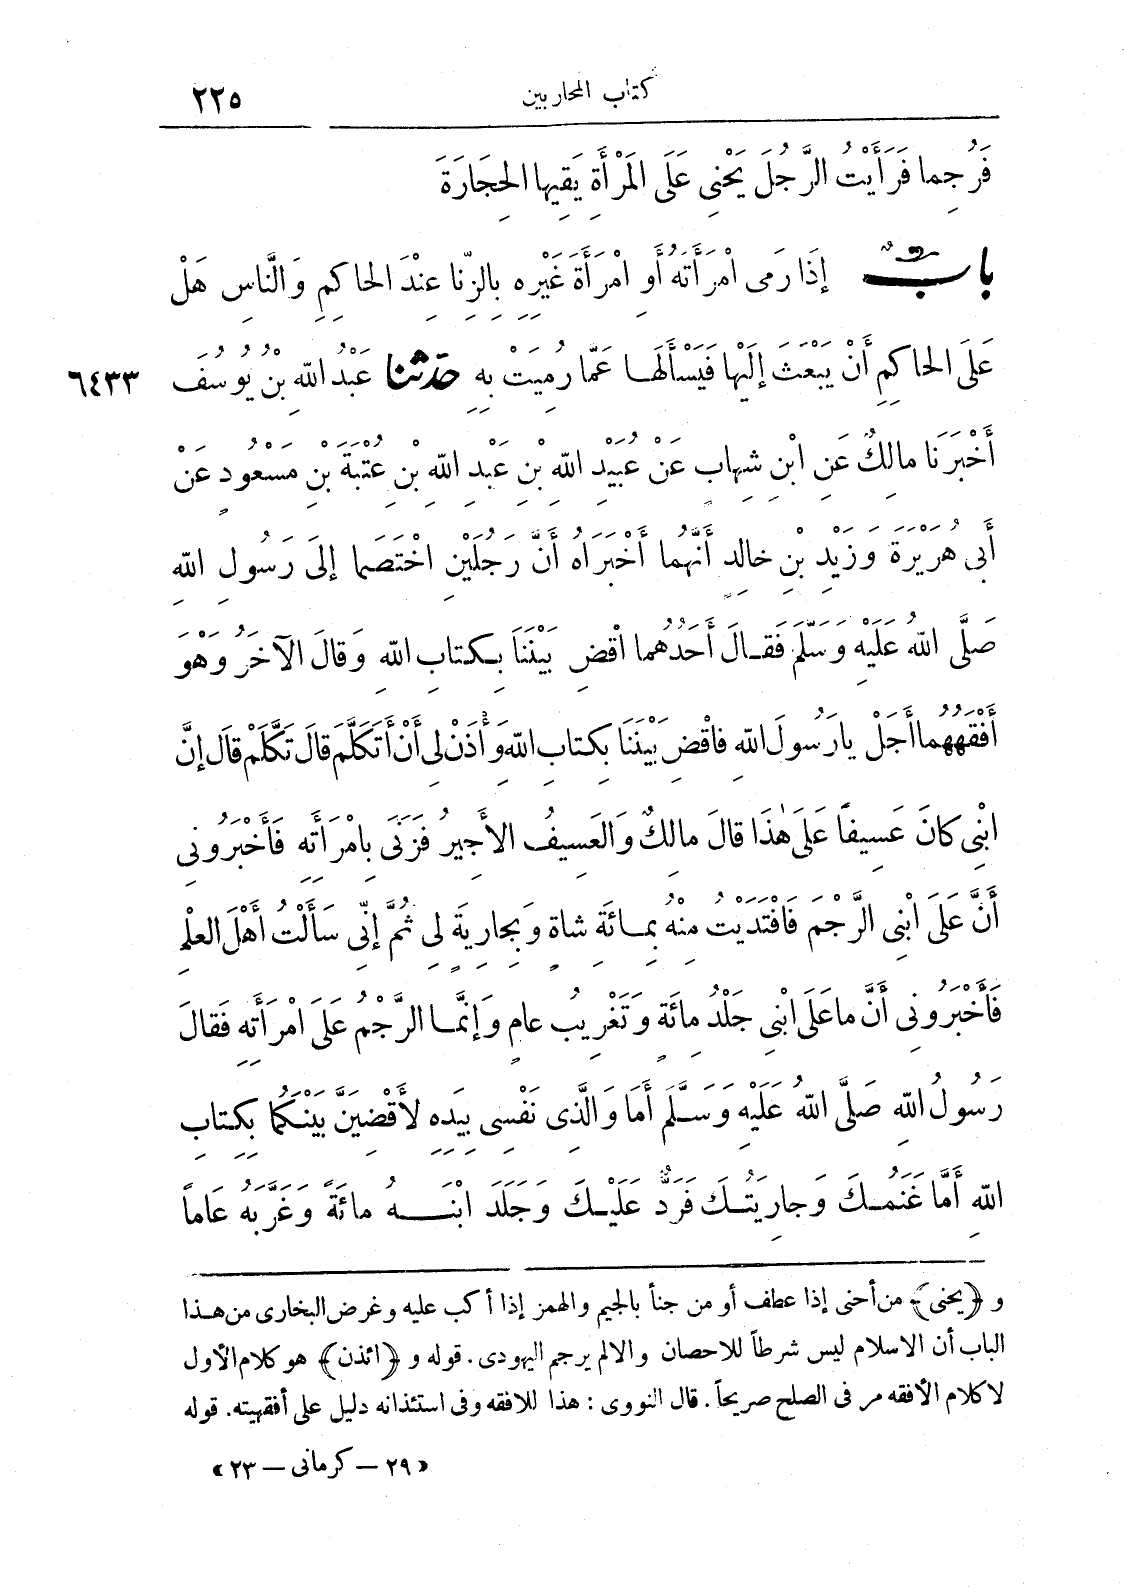 كتاب المحاربين ٢٢٥
فَرُجِما فَرَأَيْتُ الرَّجُلَ يَحْنِى عَلَى المَرْأَةِ يَقِيها الحِجَارَةَ
بابٌ إِذَا رَمى امْرَأَتَهُ أَوِ امْرَأَةَ غَيْرِهِ بِالزِّنا عِنْدَ الحاكِمِ وَالنَّاسِ هَلْ
عَلَى الحاكِمِ أَنْ يَبْعَثَ إِلَيْها فَيَسْأَلَهـا عَمّا رُمِيَتْ بِهِ حَدَّثَنا عَبْدُ اللهِ بنُ يُوسُفَ ٦٤٣٣
أَخْبَرَنا مالِكٌ عَنِ ابْنِ شِهابٍ عَنْ عُبَيْدِ اللهِ بْنِ عَبْدِ اللهِ بْنِ عُتْبَةَ بْنِ مَسْعُودٍ عَنْ
أَبِى هُرَيْرَةَ وَزَيْدِ بْنِ خالِدٍ أَنَّهُما أَخْبَرَاهُ أَنَّ رَجُلَيْنِ اخْتَصَما إِلَى رَسُولِ اللهِ
صَلَّى اللهُ عَلَيْهِ وَسَلَّمَ فَقـالَ أَحَدُهُما اقْضِ بَيْنَنَا بِـكتابِ اللهِ وَقالَ الآخَرُ وَهْوَ
أَفْقَهُهُما أَجَلْ يارَسُولَ اللهِ فاقْضِ بَيْنَنَا بِكتابِ اللهِ وَأْذَنْ لِى أَنْ أَتَكَلَّمَ قالَ تَكَلَّمْ قالَ إِنَّ
ابْنِى كانَ عَسِيفاً عَلَى هٰذَا قالَ مالِكٌ وَالعَسِيفُ الأَجِيرُ فَزَنَى بِامْرَأَتِهِ فَأَخْبَرُونِى
أَنَّ عَلَى ابْنِى الرَّجْمَ فَافْتَدَيْتُ مِنْهُ بِمـائَةِ شاةٍ وَبِجارِيَةٍ لِى ثُمَّ إِنِّى سَأَلْتُ أَهْلَ العِلْمِ
فَأَخْبَرُونِى أَنَّ ماعَلَى ابْنِى جَلْدُ مائَةٍ وَتَغْرِيبُ عامٍ وَإِنَّمـا الرَّجْمُ عَلَى امْرَأَتِهِ فَقالَ
رَسُولُ اللهِ صَلَّى اللهُ عَلَيْهِ وَسَـلَّمَ أَمَا وَالَّذِى نَفْسِى بِيَدِهِ لأَقْضِيَنَّ بَيْنَـكُما بِكِتابِ
اللهِ أَمَّا غَنَمُـكَ وَجارِيَتُـكَ فَرَدٌّ عَلَيْـكَ وَجَلَدَ ابْنَـــهُ مائَةً وَغَرَّبَهُ عَاماً
و ﴿يحنى﴾ من أحنى إذا عطف أو من جنأ بالجيم والهمز إذا أكب عليه وغرض البخارى من هـذا
الباب أن الاسلام ليس شرطاً للاحصان والا لم يرجم اليهودى. قوله و ﴿ائذن﴾ هو كلام الأول
لا كلام الأفقه مر فى الصلح صريحاً. قال النووى: هذا للافقه وفى استئذانه دليل على أفقهيته. قوله
« ٢٩ — كرمانى — ٢٣ »